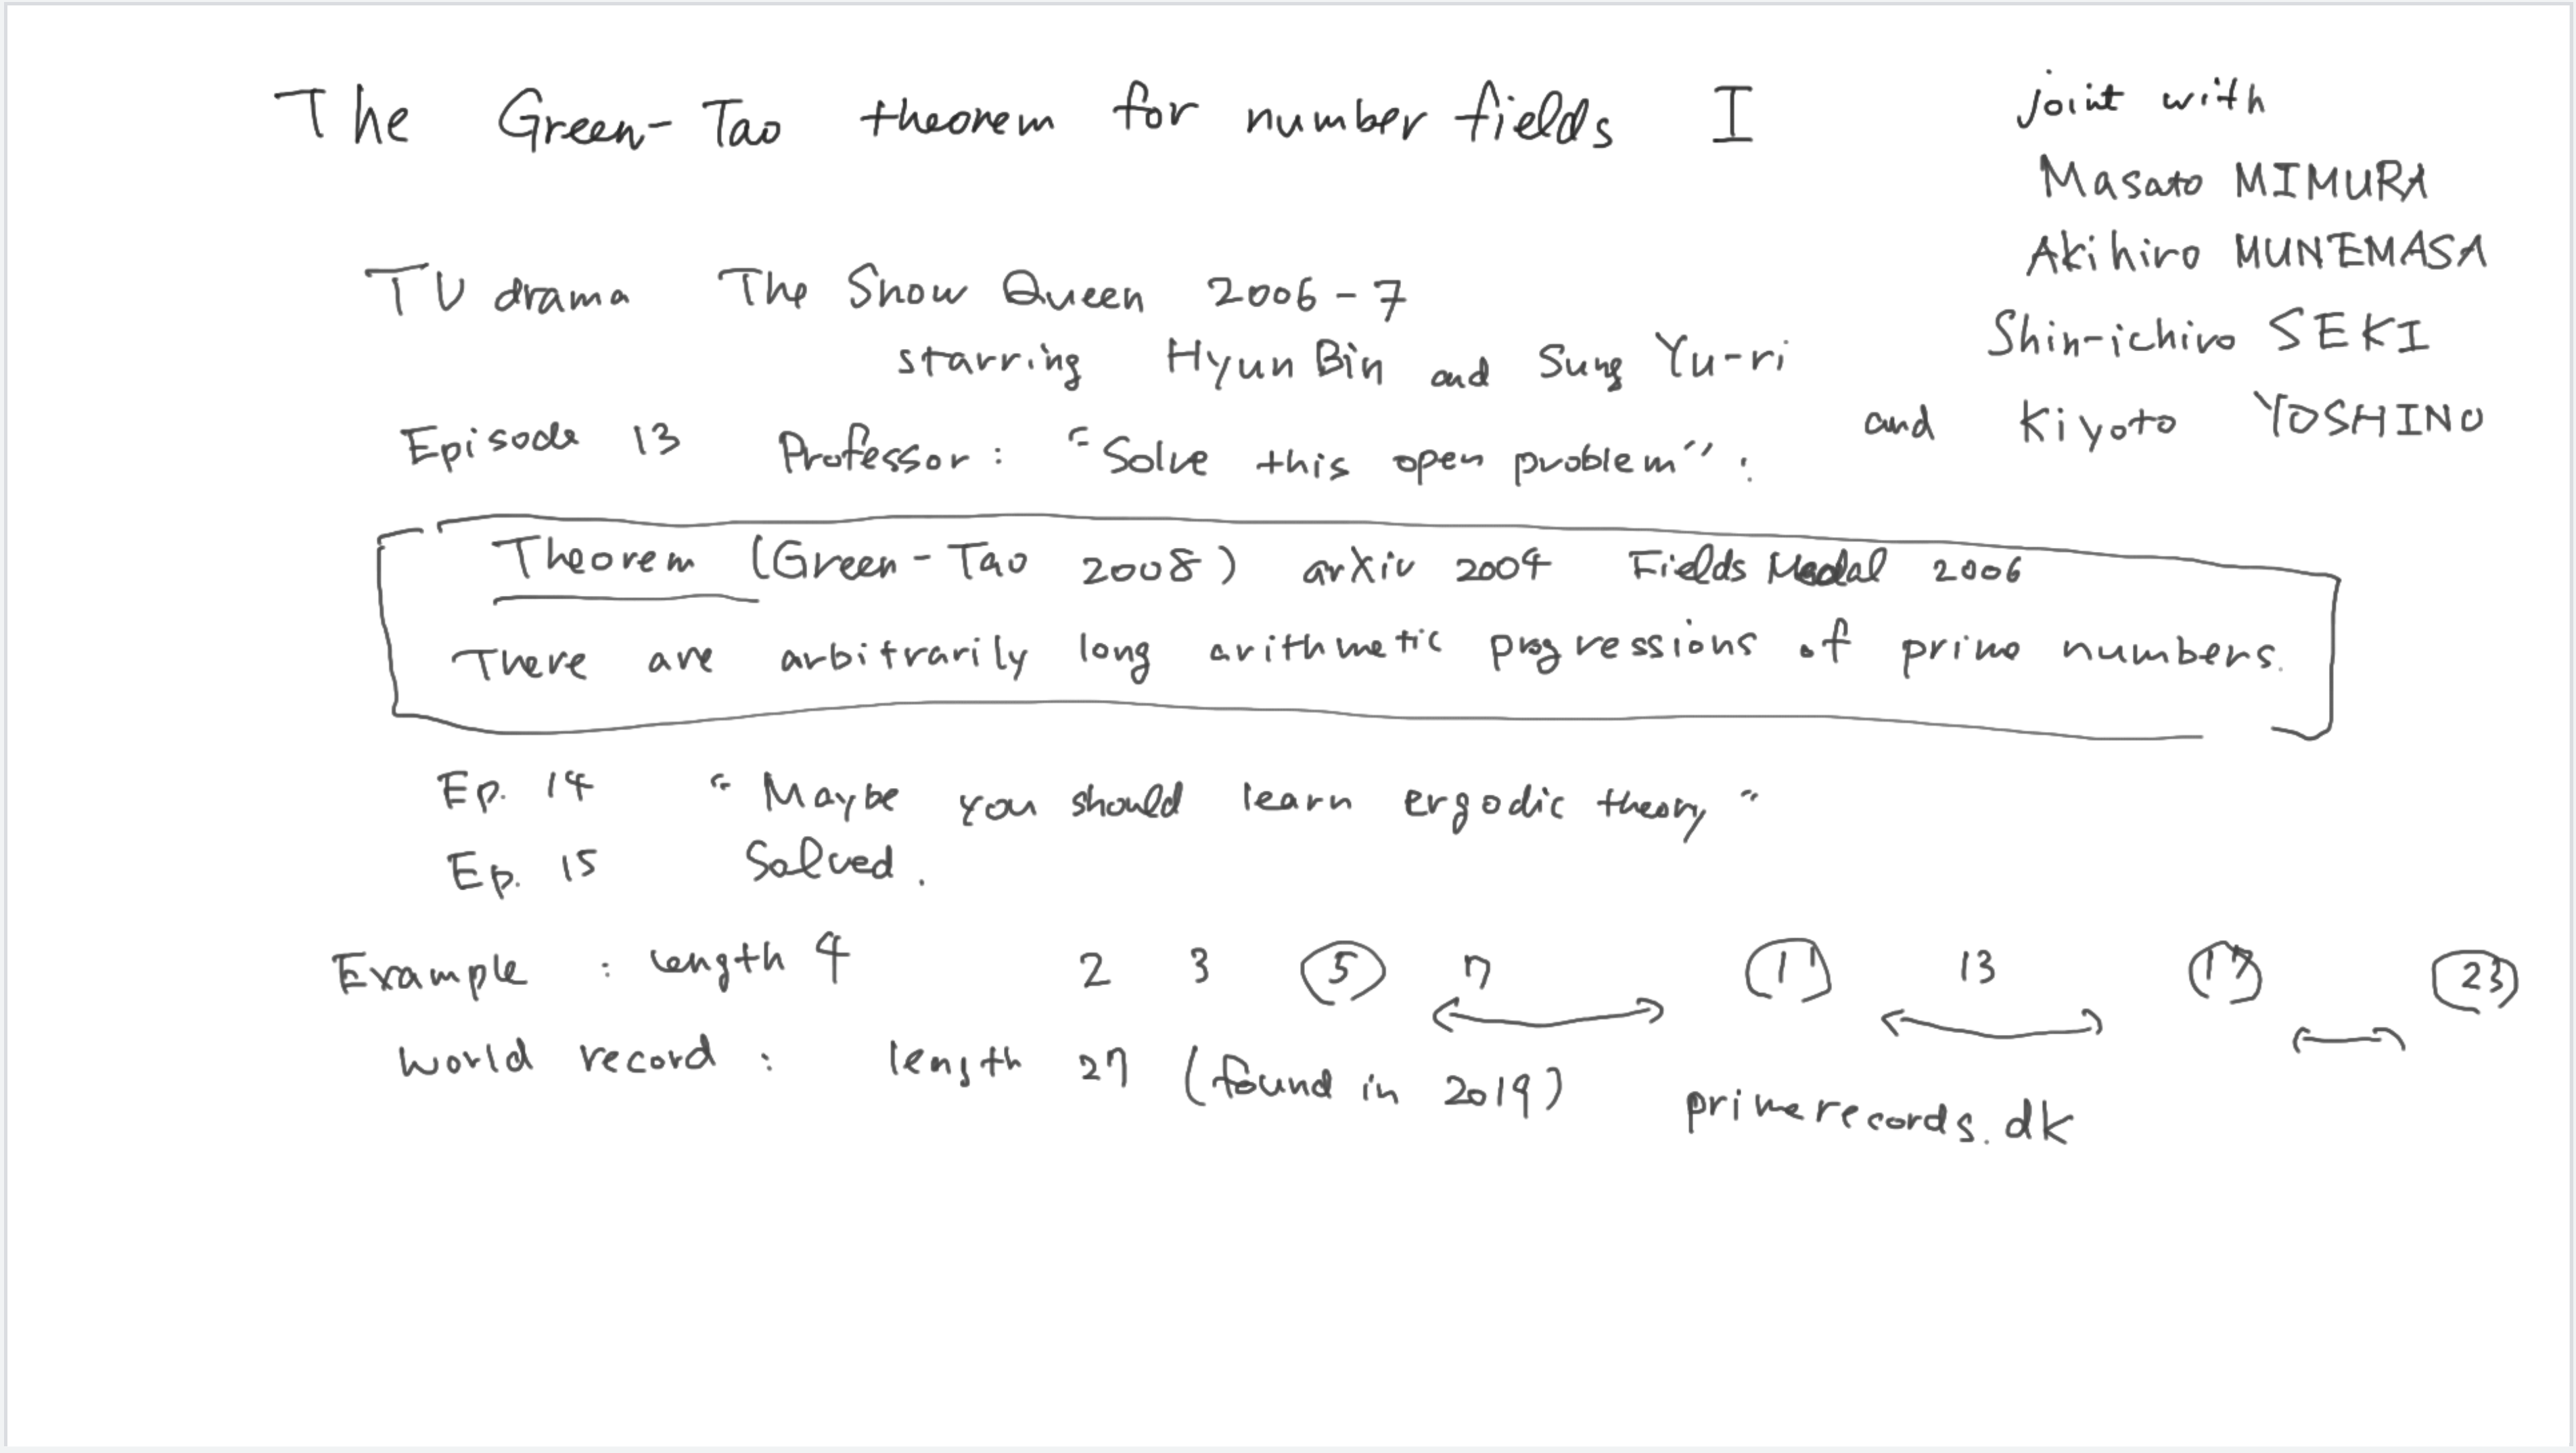 The Green-Tao theorem for number fields I
joint with
Masato MIMURA
Akihiro MUNEMASA
Shin-ichiro SEKI
and Kiyoto YOSHINO
TV drama The Snow Queen 2006-7
starring Hyun Bin and Sung Yu-ri
Episode 13 Professor: "Solve this open problem":
Theorem (Green-Tao 2008) arXiv 2004 Fields Medal 2006
There are arbitrarily long arithmetic progressions of prime numbers.
Ep. 14 "Maybe you should learn ergodic theory"
Ep. 15 Solved.
Example: length 4 2 3 5 7 11 13 17 23
World record: length 27 (found in 2019) primerecords.dk